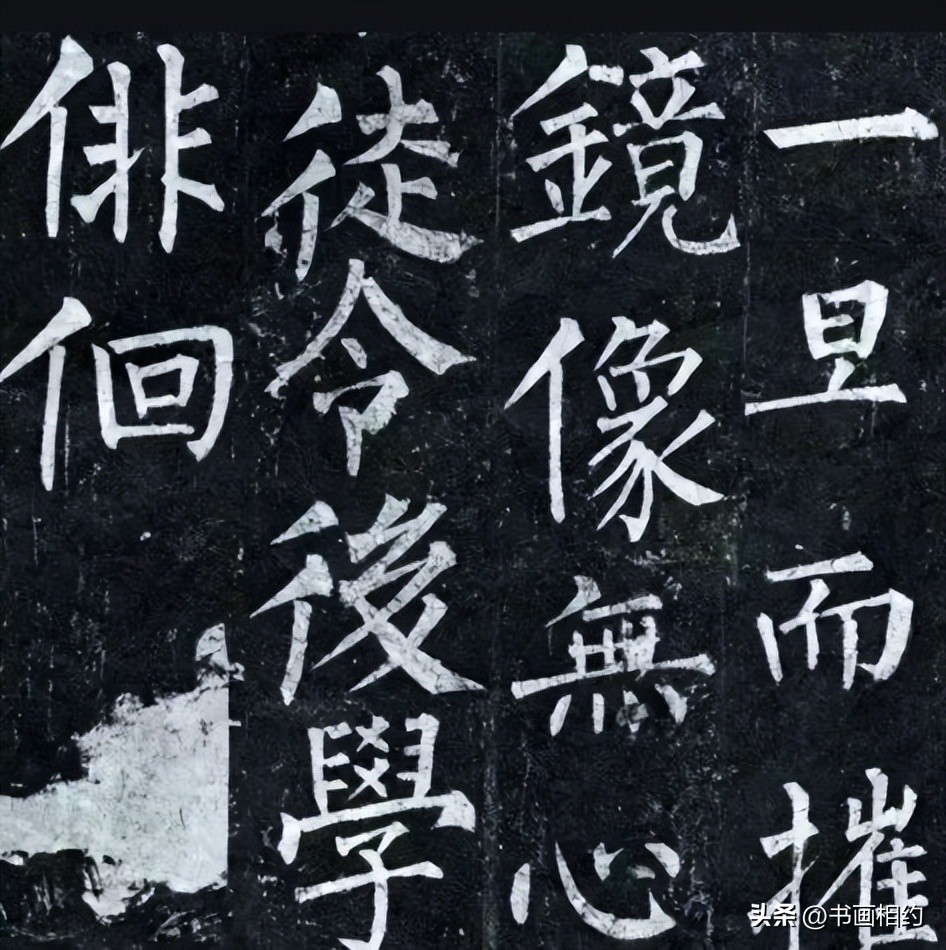 一旦而摧
鏡像無心
徒令後學
俳佪
头条 @书画相约